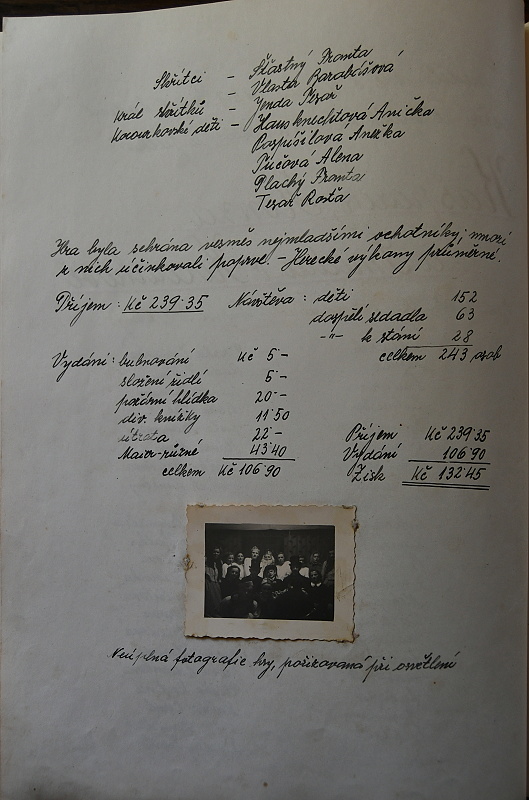 Skřítci - Šťastný Franta
- Vlasta Barabášová
Král skřítků - Jenda Tesař
Kocourkovské děti - Hausknechtová Anička
Pospíšilová Anežka
Pučová Alena
Plachý Franta
Tesař Rosťa
Hra byla sehrána vesměs nejmladšími ochotníky, mnozí
z nich účinkovali poprve. - Herecké výkony průměrné.
Příjem: Kč 239·35 Návštěva: děti 152
dospělí sedadla 63
-"- k stání 28
celkem 243 osob
Vydání: bubnování Kč 5-
složení židlí 5-
požární hlídka 20-
div. knížky 11·50
útrata 22-
Maior-různé 43·40
celkem Kč 106·90
Příjem Kč 239·35
Vydání 106·90
Zisk Kč 132·45
Neúplná fotografie hry, pořizovaná při osvětlení